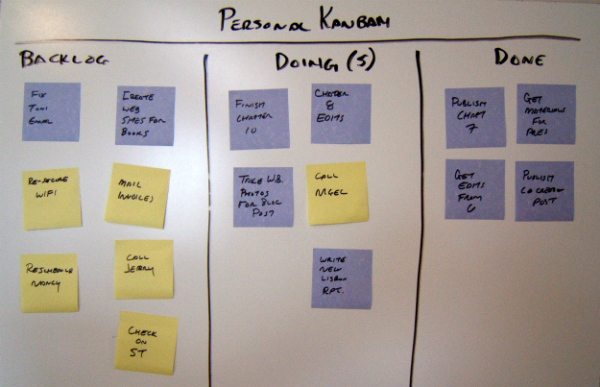 PERSONAL KANBAN
BACKLOG
FIX
TONI
EMAIL
CREATE
WEB
SITES FOR
BOOKS
RE-SECURE
WIFI
MAIL
INVOICES
NANCY
CALL
JERRY
CHECK
ON
ST
DOING (5)
FINISH
CHAPTER
10
CHAPTER
8
EDITS
TAKE W.B.
PHOTOS
FOR BLOG
POST
CALL
NIGEL
WRITE
NEW
LISBON
RPT.
DONE
PUBLISH
CHAPT
7
GET
MATERIALS
FOR
GET
EDITS
FROM
6
PUBLISH
POST